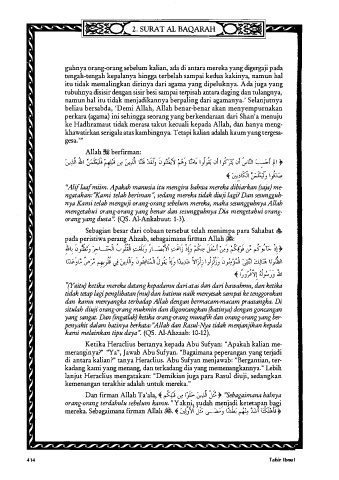 2. SURAT AL BAQARAH
guhnya orang-orang sebelum kalian, ada di antara mereka yang digergaji pada
tengah-tengah kepalanya hingga terbelah sampai kedua kakinya, namun hal
itu tidak memalingkan dirinya dari agama yang dipeluknya. Ada juga yang
tubuhnya disisir dengan sisir besi sampai terpisah antara daging dan tulangnya,
namun hal itu tidak menjadikannya berpaling dari agamanya.' Selanjutnya
beliau bersabda, 'Demi Allah, Allah benar-benar akan menyempurnakan
perkara (agama) ini sehingga seorang yang berkendaraan dari Shan'a menuju
ke Hadhramaut tidak merasa takut kecuali kepada Allah, dan hanya meng-
khawatirkan serigala atas kambingnya. Tetapi kalian adalah kaum yang tergesa-
gesa.'"
Allah ﷻ berfirman:
﴿ الم أَحَسِبَ النَّاسُ أَن يُتْرَكُوا أَن يَقُولُوا ءَامَنَّا وَهُمْ لَا يُفْتَنُونَ وَلَقَدْ فَتَنَّا الَّذِينَ مِن قَبْلِهِمْ فَلَيَعْلَمَنَّ اللَّهُ الَّذِينَ
صَدَقُوا وَلَيَعْلَمَنَّ الْكَاذِبِينَ ﴾
"Alif laaf miim. Apakah manusia itu mengira bahwa mereka dibiarkan (saja) me-
ngatakan: 'Kami telah beriman', sedang mereka tidak diuji lagi? Dan sesungguh-
nya Kami telah menguji orang-orang sebelum mereka, maka sesungguhnya Allah
mengetahui orang-orang yang benar dan sesungguhnya Dia mengetahui orang-
orang yang dusta". (QS. Al-Ankabuut: 1-3).
Sebagian besar dari cobaan tersebut telah menimpa para Sahabat
pada peristiwa perang Ahzab, sebagaimana firman Allah ﷻ:
﴿ إِذْ جَاءُوكُم مِّن فَوْقِكُمْ وَمِنْ أَسْفَلَ مِنكُمْ وَإِذْ زَاغَتِ الْأَبْصَارُ وَبَلَغَتِ الْقُلُوبُ الْحَنَاجِرَ وَتَظُنُّونَ بِاللَّهِ
الظُّنُونَا هُنَالِكَ ابْتُلِيَ الْمُؤْمِنُونَ وَزُلْزِلُوا زِلْزَالًا شَدِيدًا وَإِذْ يَقُولُ الْمُنَافِقُونَ وَالَّذِينَ فِي قُلُوبِهِم مَّرَضٌ مَّا وَعَدَنَا
اللَّهُ وَرَسُولُهُ إِلَّا غُرُورًا ﴾
"(Yaitu) ketika mereka datang kepadamu dari atas dan dari bawahmu, dan ketika
tidak tetap lagi penglihatan (mu) dan hatimu naik menyesak sampai ke tenggorokan
dan kamu menyangka terhadap Allah dengan bermacam-macam prasangka. Di
situlah diuji orang-orang mukmin dan digoncangkan (hatinya) dengan goncangan
yang sangat. Dan (ingatlah) ketika orang-orang munafik dan orang-orang yang ber-
penyakit dalam hatinya berkata: 'Allah dan Rasul-Nya tidak menjanjikan kepada
kami melainkan tipu daya'". (QS. Al-Ahzaab: 10-12).
Ketika Heraclius bertanya kepada Abu Sufyan: "Apakah kalian me-
meranginya?" "Ya", Jawab Abu Sufyan. "Bagaimana peperangan yang terjadi
di antara kalian?" tanya Heraclius. Abu Sufyan menjawab: "Bergantian, ter-
kadang kami yang menang, dan terkadang dia yang memenangkannya." Lebih
lanjut Heraclius mengatakan: "Demikian juga para Rasul diuji, sedangkan
kemenangan terakhir adalah untuk mereka."
Dan firman Allah Ta'ala, ﴿ مَّثَلُ الَّذِينَ خَلَوْا مِن قَبْلِكُم ﴾ "Sebagaimana halnya
orang-orang terdahulu sebelum kamu." Yakni, sudah menjadi ketetapan bagi
mereka. Sebagaimana firman Allah ﷻ, ﴿ فَأَهْلَكْنَا أَشَدَّ مِنْهُم بَطْشًا وَمَضَى مَثَلُ الْأَوَّلِينَ ﴾
414
Tafsir Ibnu 1